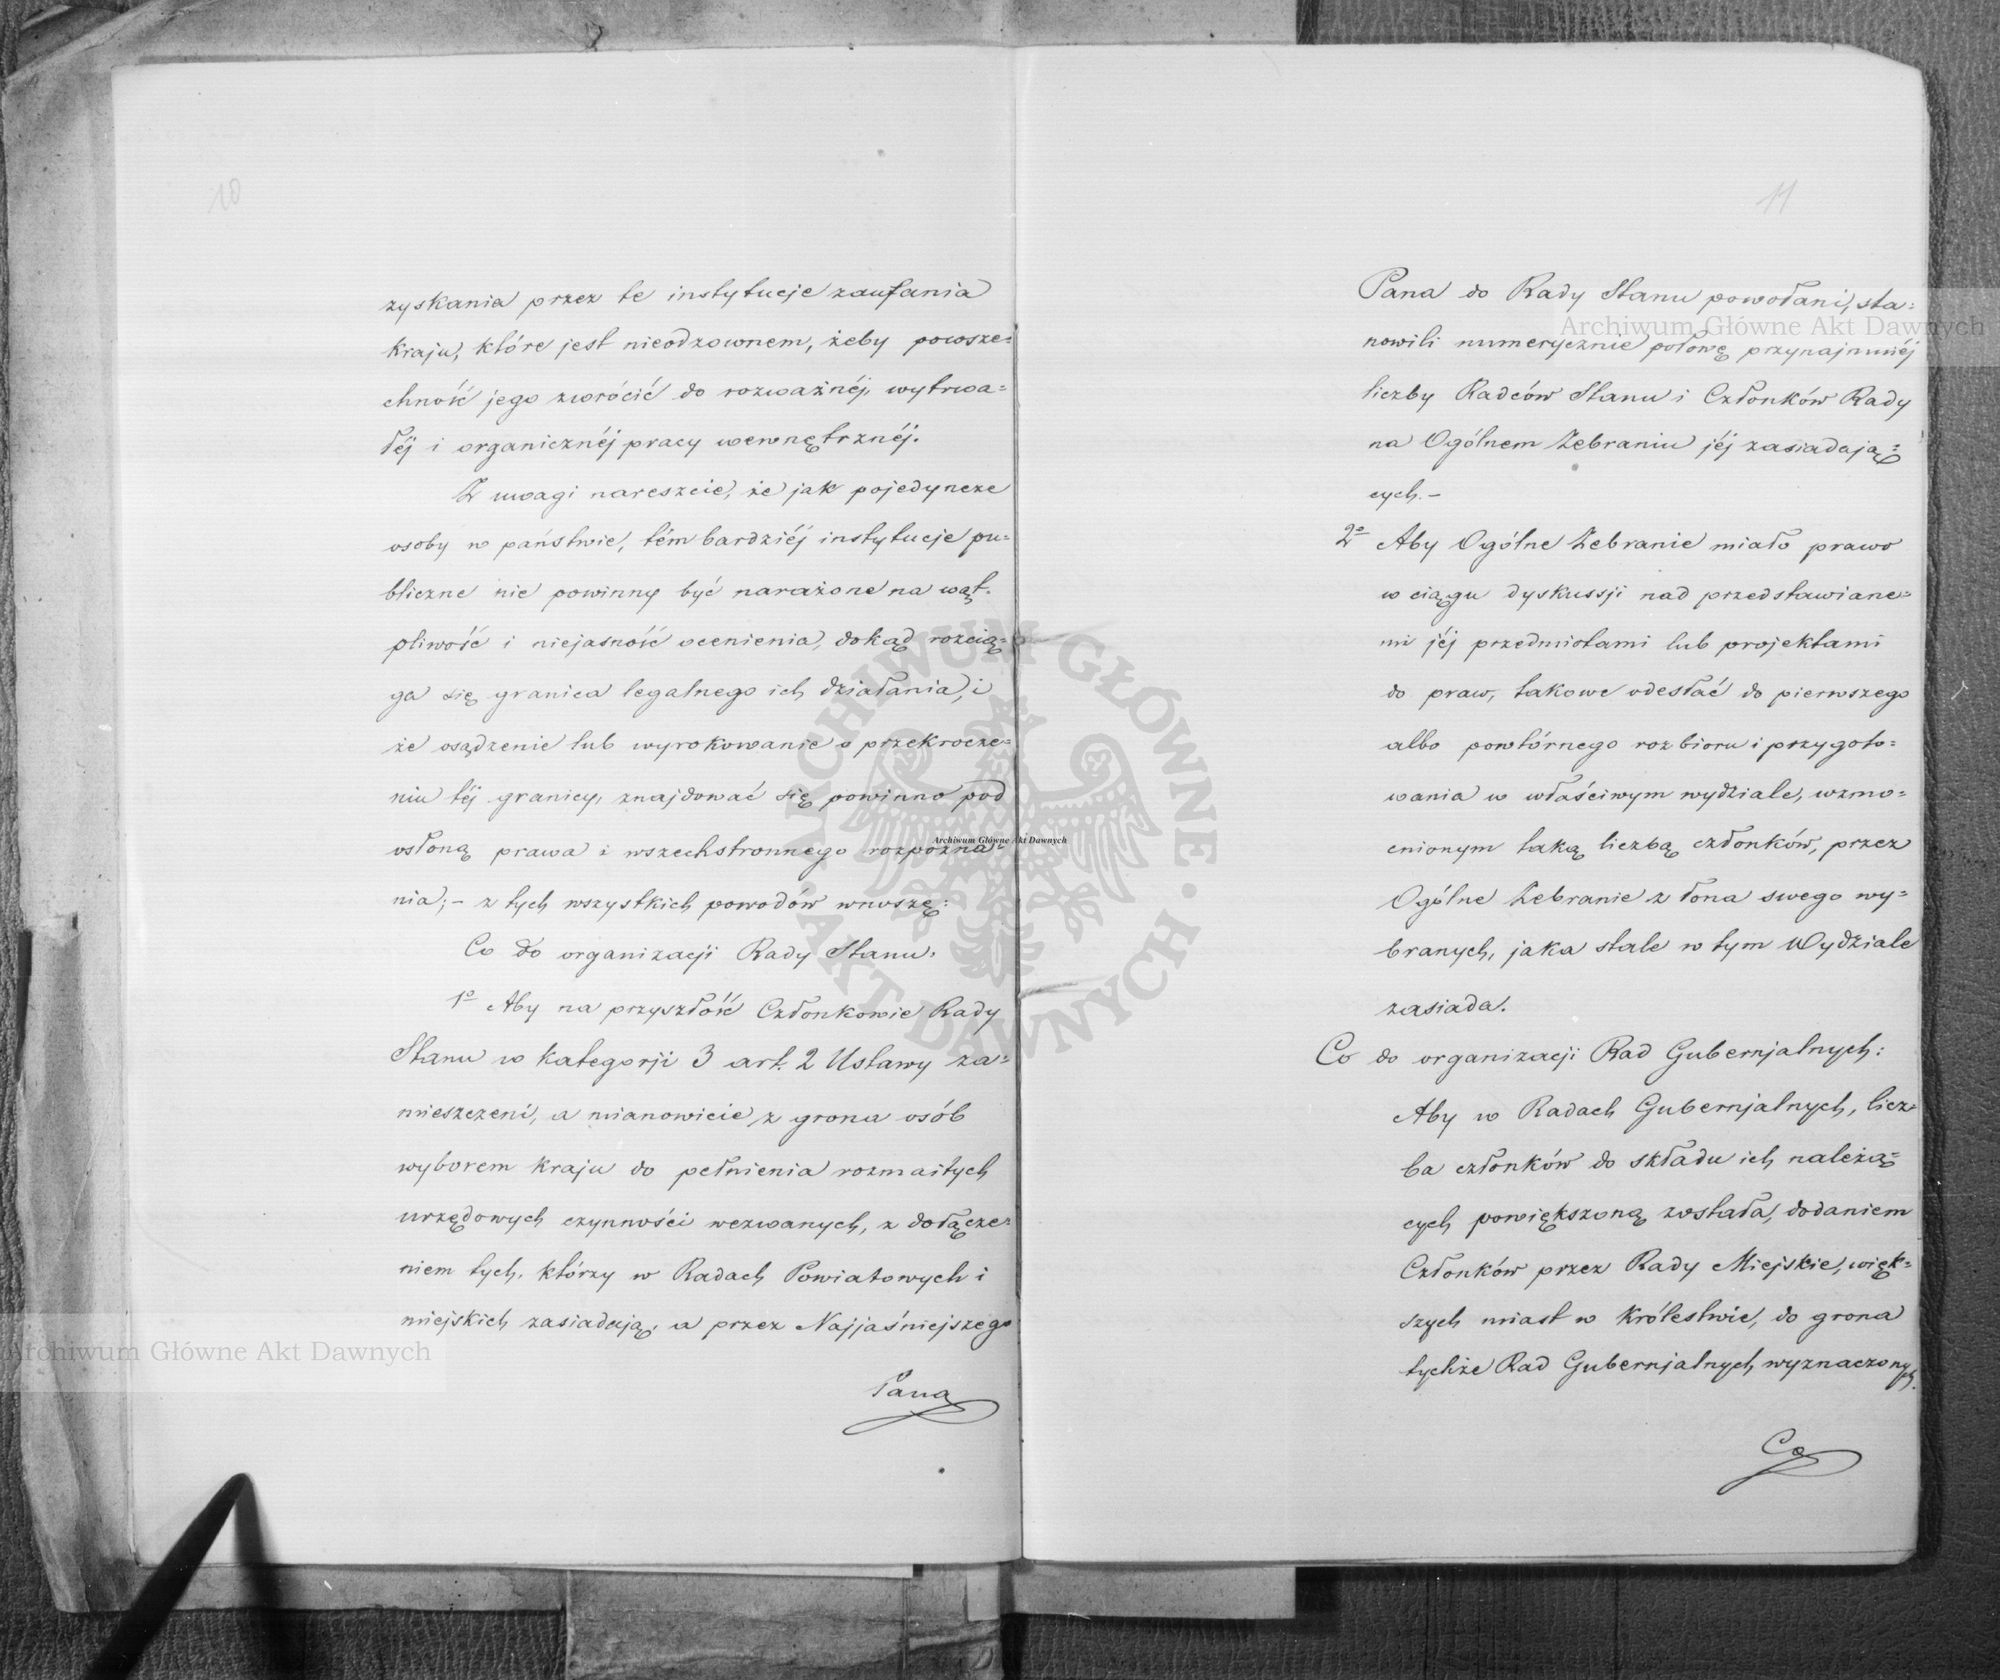 10
zyskania przez te instytucje zaufania
kraju, które jest nieodzownem, żeby powsze=
chność jego zwrócić do rozważnéj, wytrwa=
łéj i organicznéj pracy wewnętrznéj.
Z uwagi nareszcie, że jak pojedyncze
osoby w państwie, tém bardziéj instytucje pu=
bliczne nie powinny być narażone na wąt=
pliwość i niejasność ocenienia, dokąd rozcią=
ga się granica legalnego ich działania, i
że osądzenie lub wyrokowanie o przekrocze=
niu téj granicy, znajdować się powinno pod
osłoną prawa i wszechstronnego rozpozna=
nia; – z tych wszystkich powodów wnoszę:
Co do organizacji Rady Stanu.
1º Aby na przyszłość Członkowie Rady
Stanu w kategorji 3 art. 2 Ustawy za=
mieszczeni, a mianowicie z grona osób
wyborem kraju do pełnienia rozmaitych
urzędowych czynności wezwanych, z dołącze=
niem tych, którzy w Radach Powiatowych i
miejskich zasiadają, a przez Najjaśniejszego
Pana
11
Pana do Rady Stanu powołani, sta=
nowili numerycznie połowę przynajmniéj
liczby Radców Stanu i Członków Rady
na Ogólnem Zebraniu jéj zasiadają=
cych. –
2º Aby Ogólne Zebranie miało prawo
w ciągu dyskussji nad przedstawiane=
mi jéj przedmiotami lub projektami
do praw, takowe odesłać do pierwszego
albo powtórnego rozbioru i przygoto=
wania w właściwym wydziale, wzmo=
cnionym taką liczbą członków, przez
Ogólne Zebranie z łona swego wy=
branych, jaka stale w tym Wydziale
zasiada.
Co do organizacji Rad Gubernjalnych:
Aby w Radach Gubernjalnych, licz=
ba członków do składu ich należą=
cych powiększoną została, dodaniem
Członków przez Rady Miejskie, więk=
szych miast w Królestwie, do grona
tychże Rad Gubernjalnych wyznaczonych.
Co
Archiwum Główne Akt Dawnych
Archiwum Główne Akt Dawnych
Archiwum Główne Akt Dawnych
ARCHIWUM GŁÓWNE · AKT DAWNYCH ·